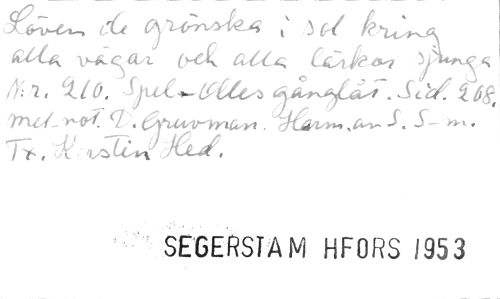 Löven de grönska i sol kring
alla vägar och alla lärkor sjunga
Nr. 210. Spel-Olles gånglåt. Sid. 208.
mel-not. D. Gruvman. Harm. av S. S-m.
Tx. Kerstin Hed.
SEGERSTAM HFORS 1953